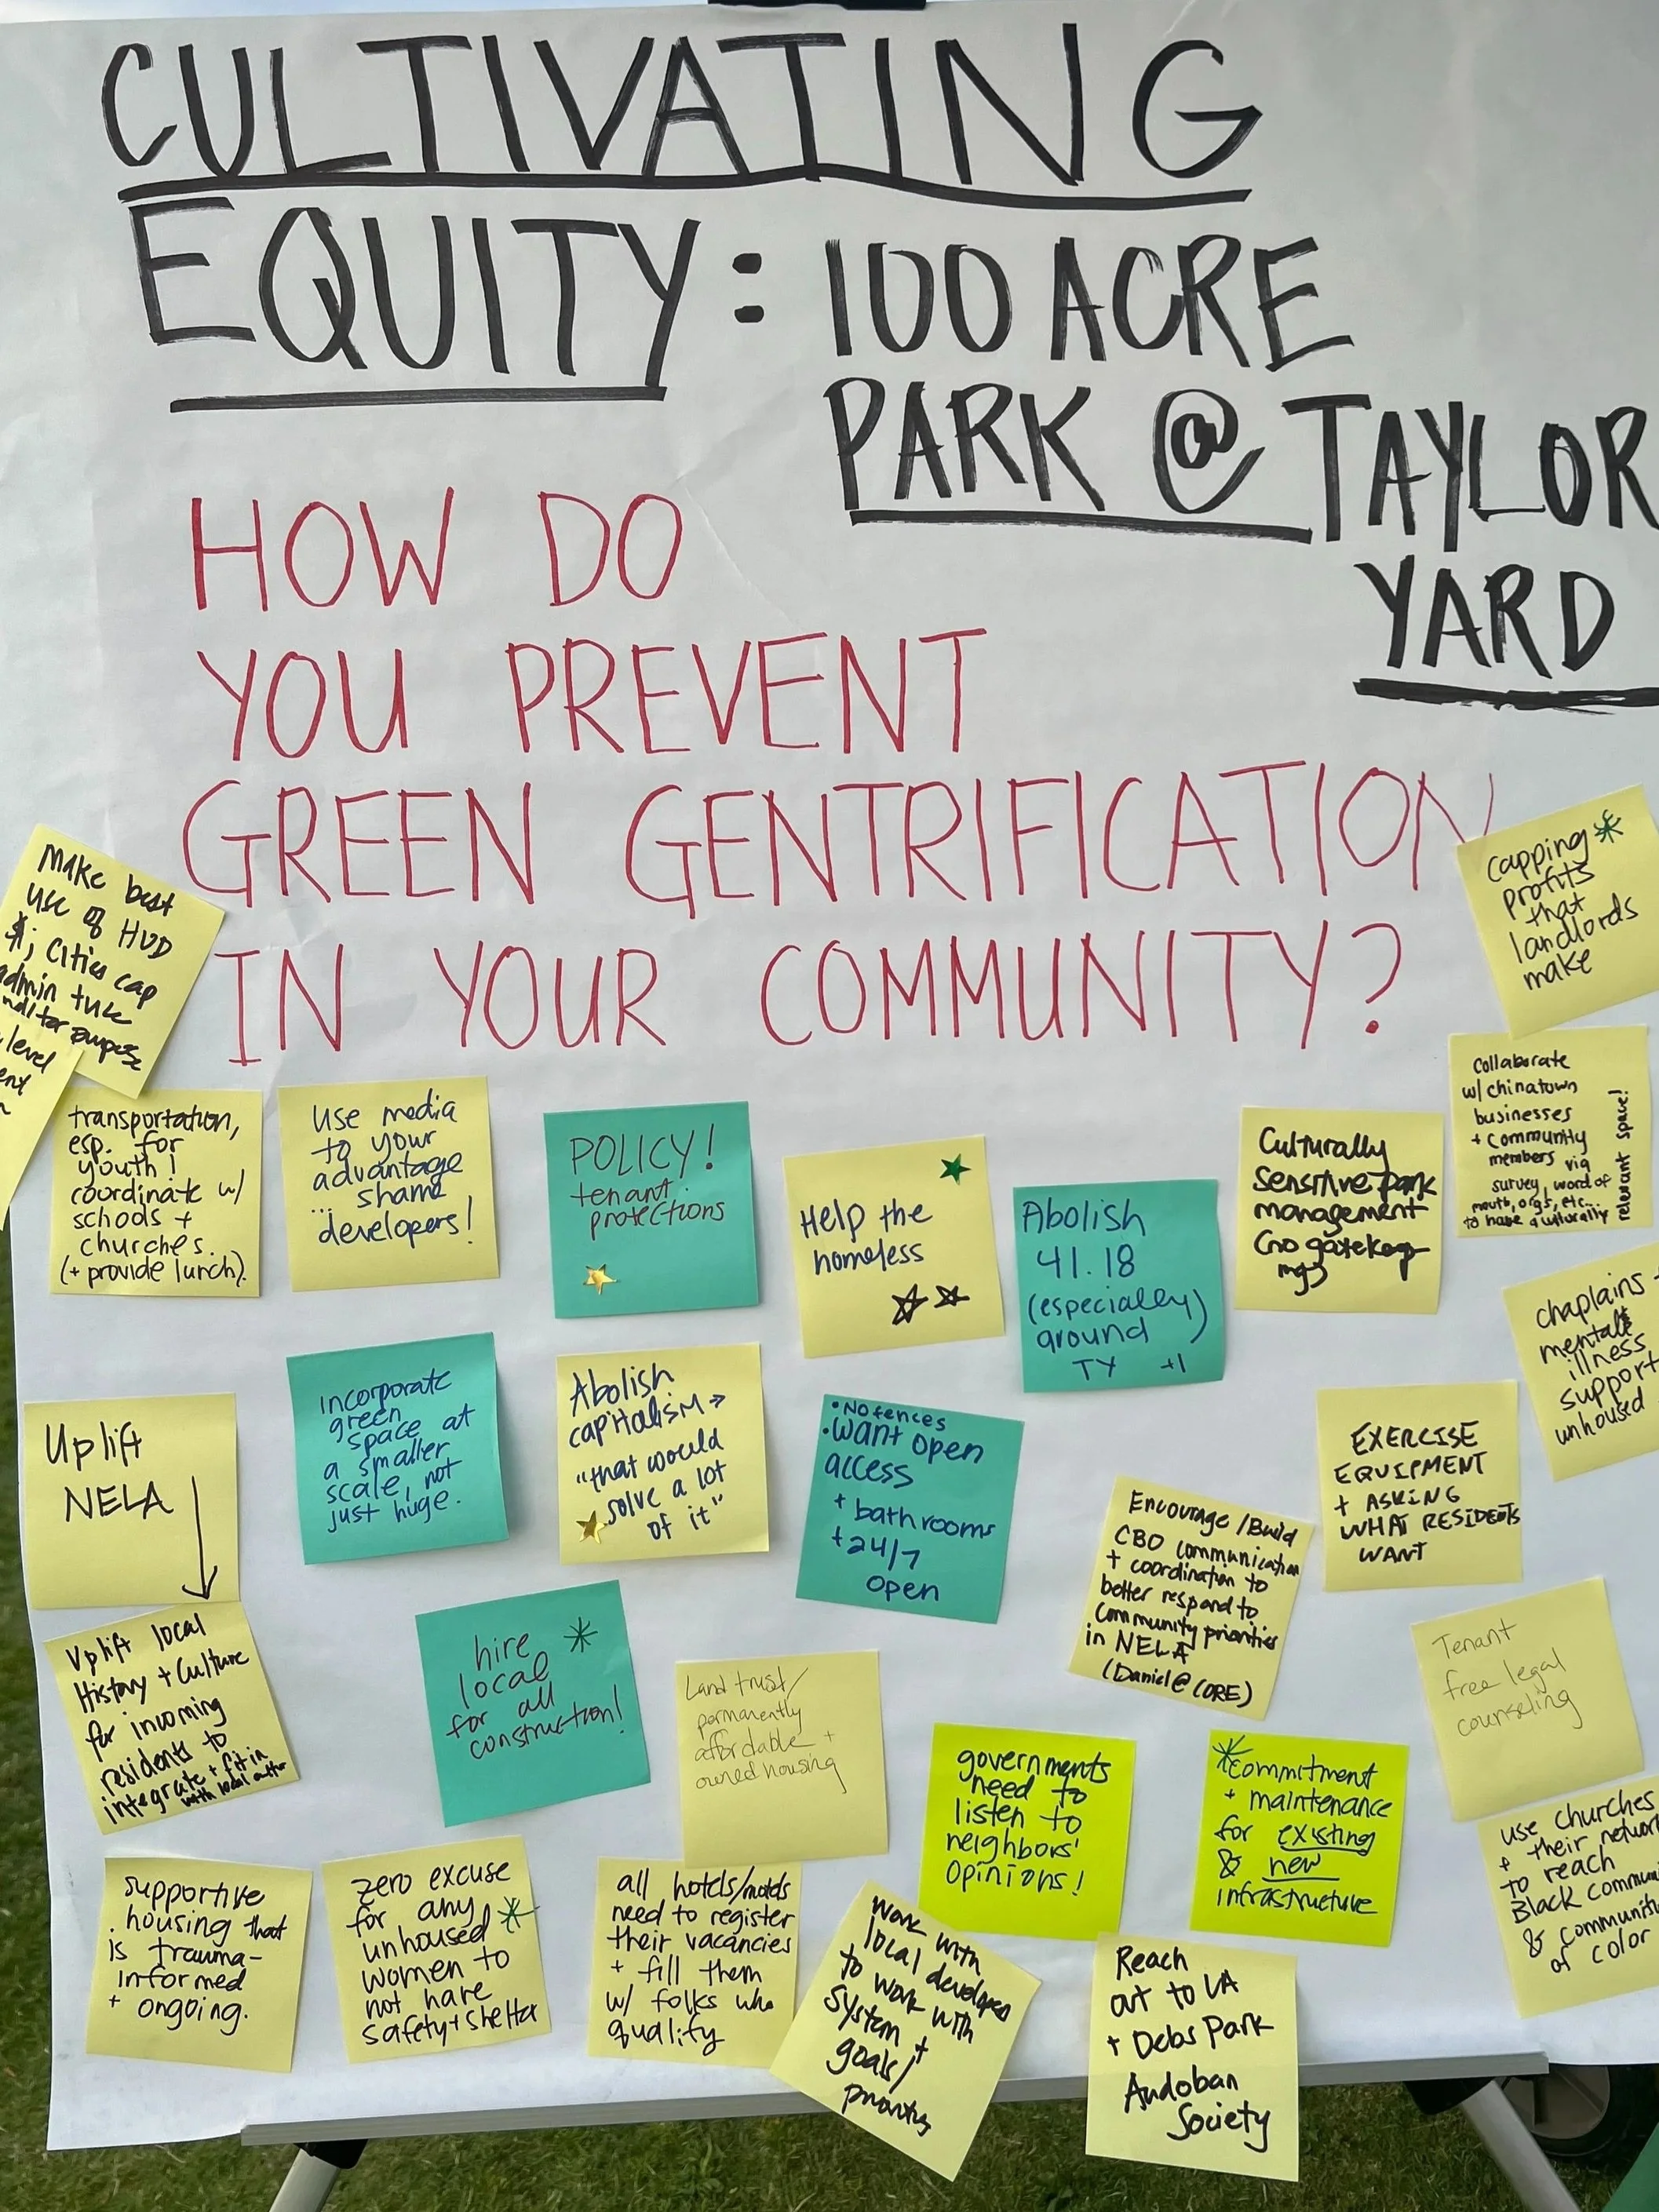 CULTIVATING
EQUITY: 100 ACRE
PARK @ TAYLOR
YARD
HOW DO
YOU PREVENT
GREEN GENTRIFICATION
IN YOUR COMMUNITY?
Make best
use of HUD
$; Cities cap
admin
purpose
level
capping
profits
that
landlords
make
transportation,
esp. for
youth!
coordinate w/
schools +
churches.
(+ provide lunch).
use media
to your
advantage
... shame
developers!
POLICY!
tenant
protections
Help the
homeless
Abolish
41.18
(especially)
around
TY +1
Culturally
Sensitive park
management
(no gatekeep
ing)
collaborate
w/ chinatown
businesses
+ community
members via
survey, word of
mouth, orgs, etc...
to have a culturally
relevant space!
chaplains +
mental
illness
support
unhoused
Uplift
NELA
incorporate
green
space at
a smaller
scale, not
just huge.
Abolish
capitalism →
"that would
solve a lot
of it"
• No fences
• want open
access
+ bathrooms
+ 24/7
open
Encourage/Build
CBO communication
+ coordination to
better respond to
community priorities
in NELA
(Daniel @ CORE)
EXERCISE
EQUIPMENT
+ ASKING
WHAT RESIDENTS
WANT
Uplift local
History + Culture
for incoming
residents to
integrate + fit in
with local
hire
local
for all
construction!
Land trust/
permanently
affordable +
owned housing
Tenant
free legal
counseling
governments
need to
listen to
neighbors'
opinions!
Commitment
+ maintenance
for existing
& new
infrastructure
use churches
+ their
to reach
Black
&
of color
supportive
housing that
is trauma-
informed
+ ongoing.
zero excuse
for any
unhoused
women to
not have
safety + shelter
all hotels/motels
need to register
their vacancies
+ fill them
w/ folks who
qualify
work with
local developers
to work with
system +
goals/
priorities
Reach
out to LA
+ Debs Park
Audoban
Society